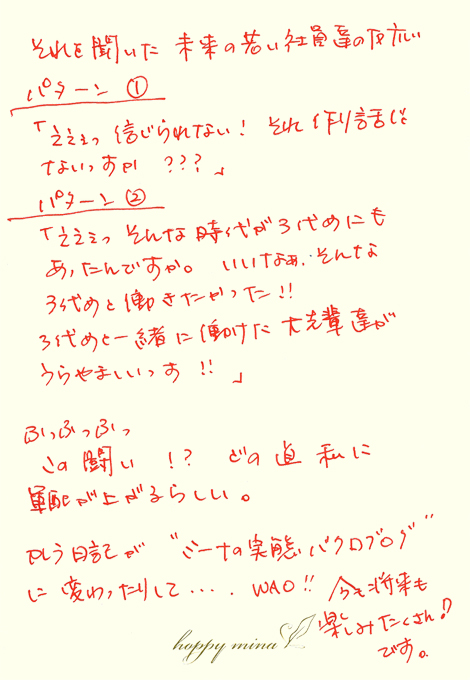 それを聞いた 未来の若い社員達の反応い
パターン ①
「えええっ 信じられない! それ 作り話じ
ないっすか ???」
パターン ②
「えええっ そんな 時代が 3代めにも
あったんですか。 いいなぁ、そんな
3代めと 働きたかった!!
3代めと一緒に 働けた 大先輩達が
うらやましいっす !!」
ふっふっふっ
この 闘い !? どの道 私に
軍配が上がるらしい。
絵日記が “ミーナの実態バクロブログ”
に 変わったりして・・・. WAO!! 今も将来も
楽しみたくさん!!
です。
happy mina